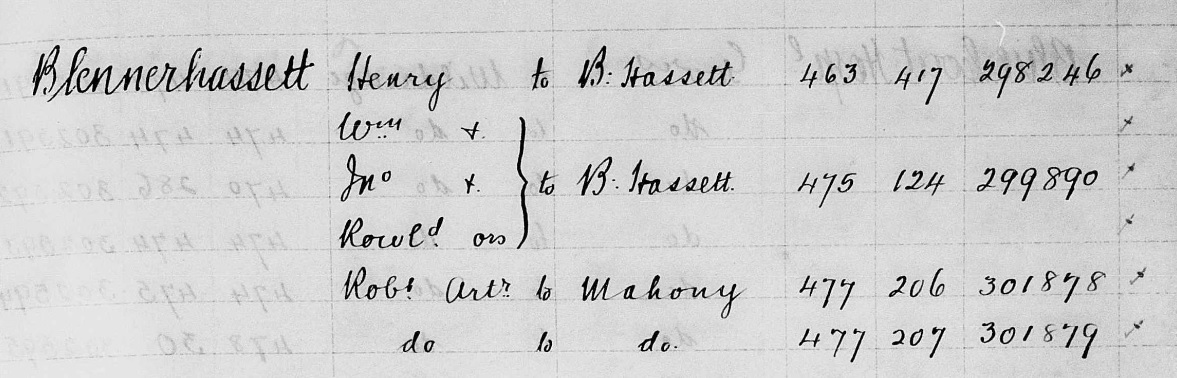 Blennerhassett Henry to B: Hassett. 463 417 298246 x
Wm &. x
Jno &. } to B: Hassett. 475 124 299890 x
Rowld ors x
Robt Artr to Mahony 477 206 301878 x
do to do. 477 207 301879 x